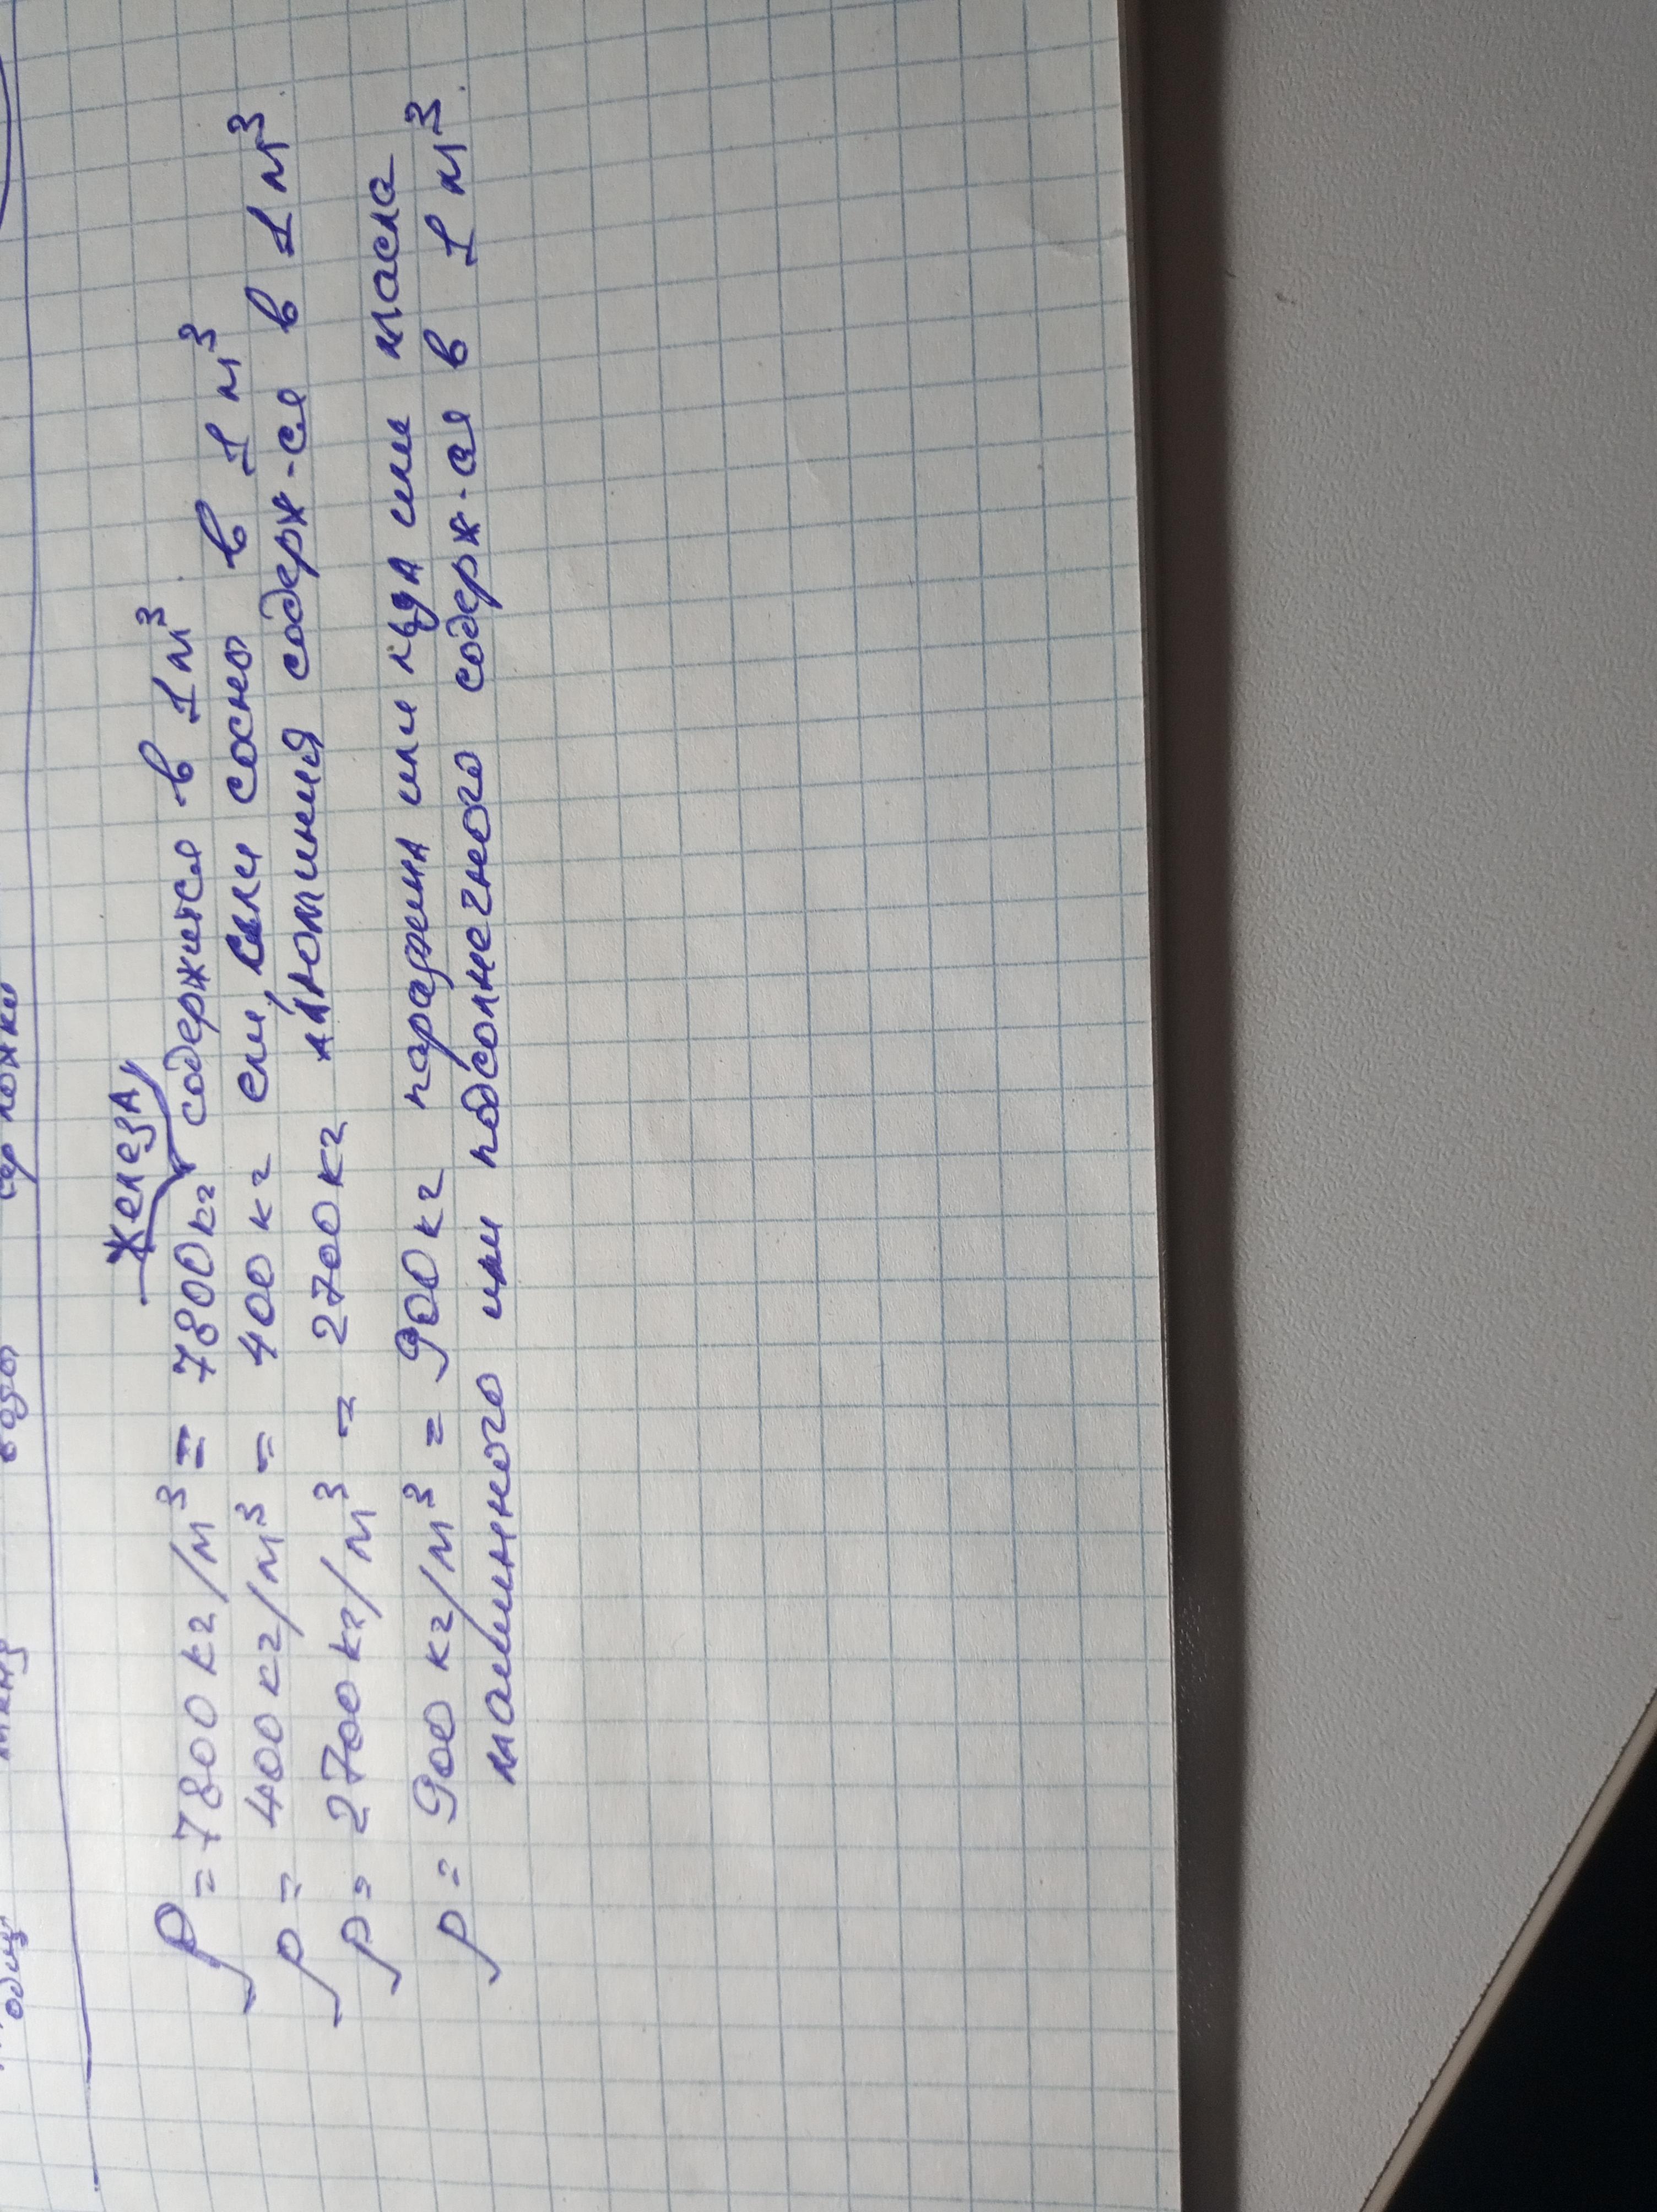 сер ложки
вода
одц
железа
ρ = 7800 кг/м³ = 7800 кг содержится в 1 м³
ρ = 400 кг/м³ = 400 кг ели, или сосны в 1 м³
ρ = 2700 кг/м³ = 2700 кг алюминия содерж-ся в 1 м³
ρ = 900 кг/м³ = 900 кг парафина или льда или масла
машинного или подсолнечного содерж-ся в 1 м³.